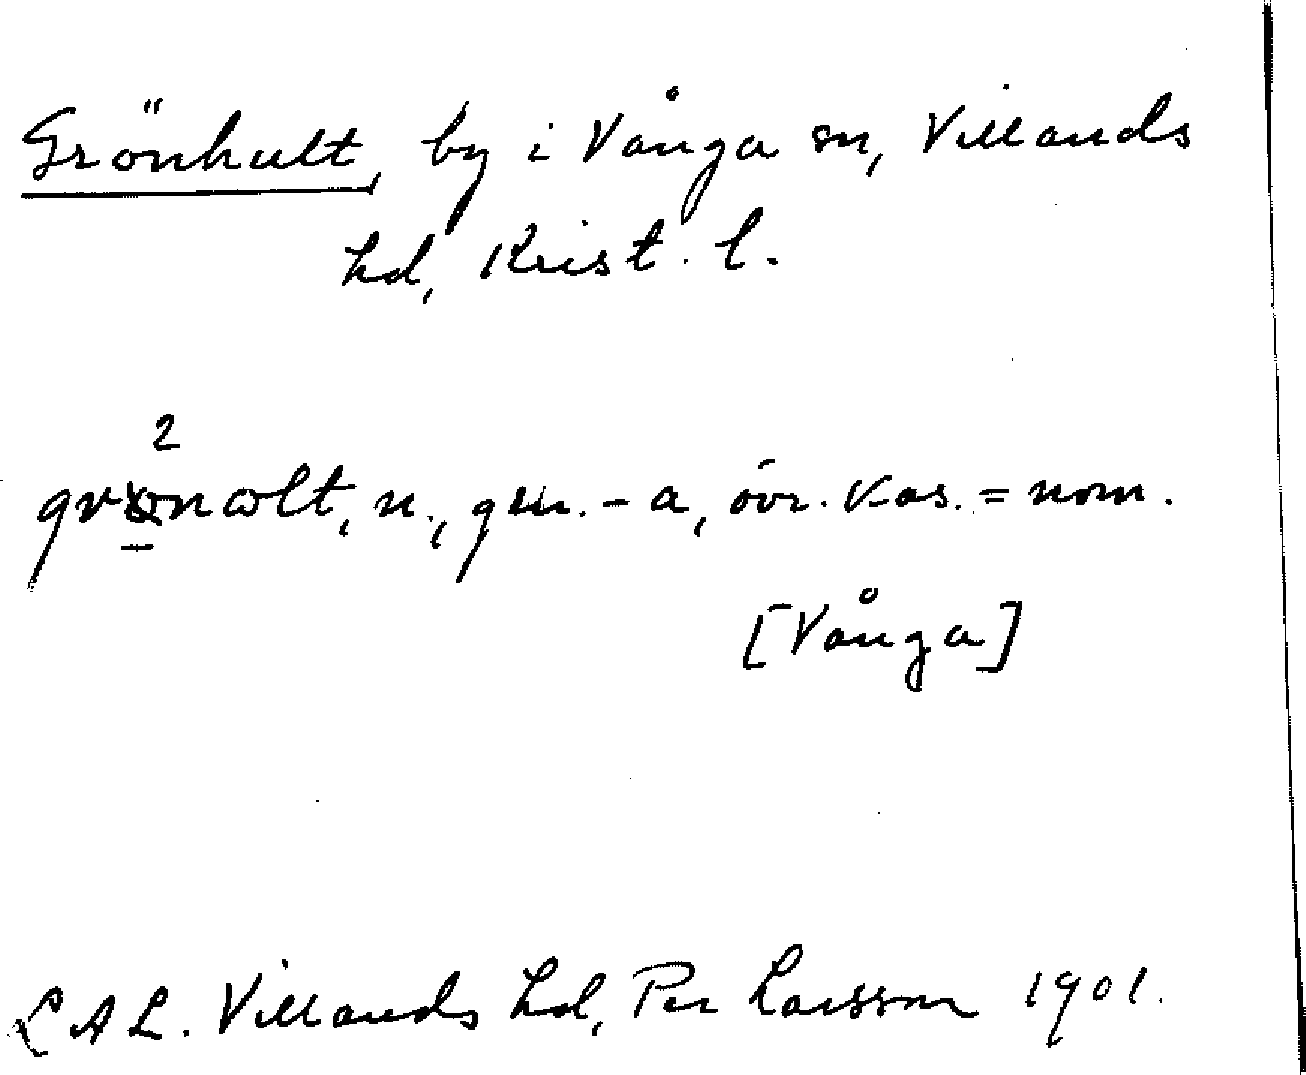 Grönhult, by i Vånga sn, Villands
hd, Krist. l.
2
n., gen. -a, övr. kas. = nom.
[Vånga]
LAL. Villands hd, Per Larsson 1901.